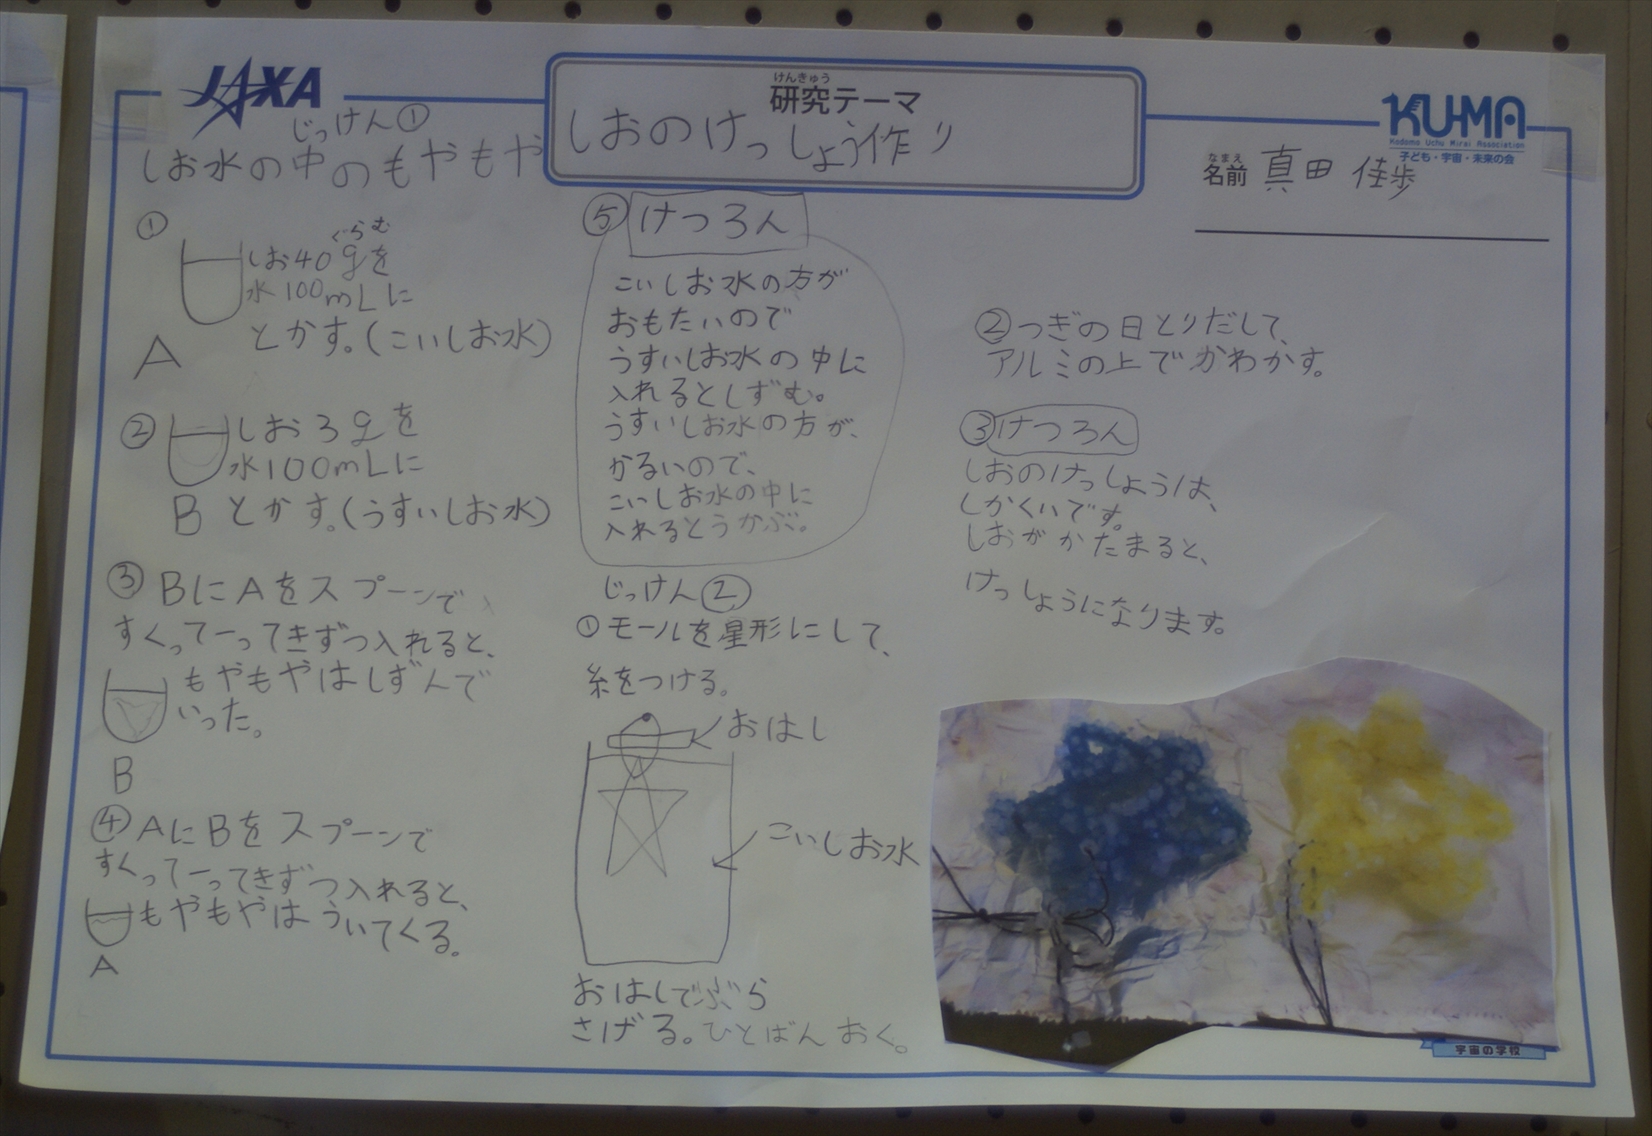 JAXA
けんきゅう
研究テーマ
しおのけっしょう作り
KU-MA
Kodomo Uchu Mirai Association
子ども・宇宙・未来の会
なまえ
名前 真田 佳歩
じっけん①
しお水の中のもやもや
①
ぐらむ
しお40gを
水100mLに
とかす。(こいしお水)
A
② しお3gを
水100mLに
B とかす。(うすいしお水)
③ BにAをスプーンで
すくって一ってきずつ入れると、
もやもやはしずんで
いった。
B
④ AにBをスプーンで
すくって一ってきずつ入れると、
もやもやはういてくる。
A
⑤ けつろん
こいしお水の方が
おもたいので
うすいしお水の中に
入れるとしずむ。
うすいしお水の方が、
かるいので、
こいしお水の中に
入れるとうかぶ。
じっけん②
①モールを星形にして、
糸をつける。
おはし
こいしお水
おはしでぶら
さげる。ひとばんおく。
②つぎの日とりだして、
アルミの上でかわかす。
③けつろん
しおのけっしょうは、
しかくいです。
しおがかたまると、
けっしょうになります。
宇宙の学校